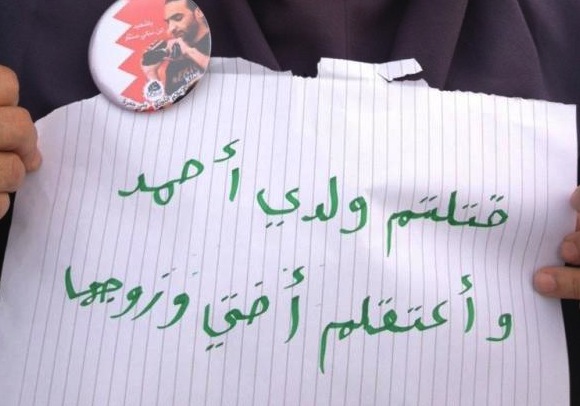 قتلتم ولدي أحمد
وأعتقلم أختي وزوجها